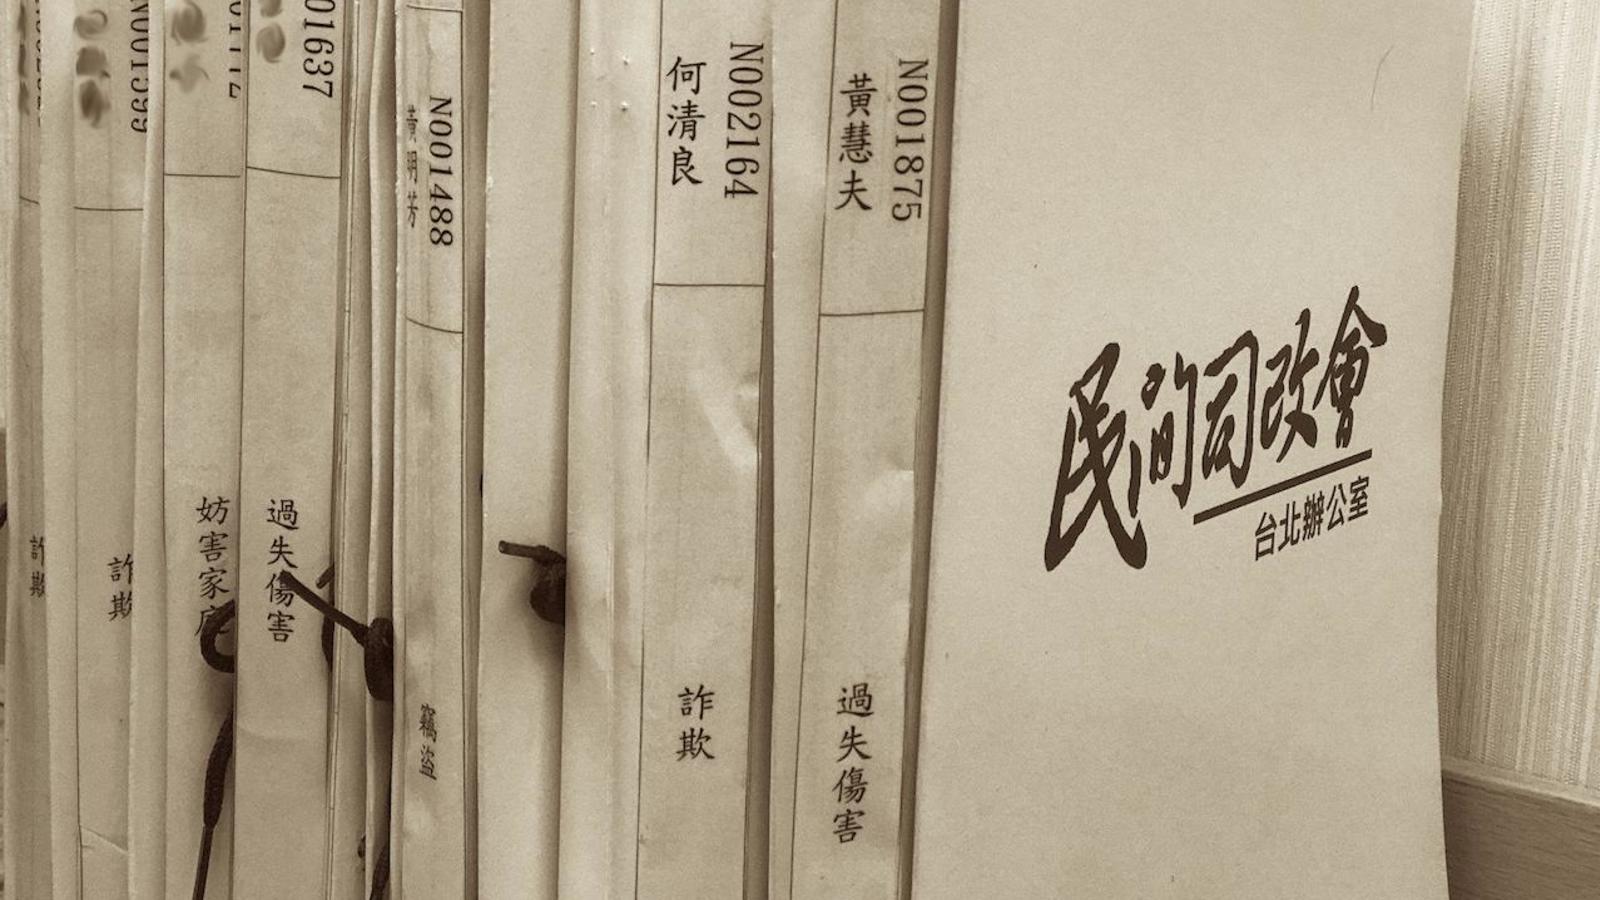 詐欺
N001599
詐欺
妨害家庭
01637
過失傷害
N001488
黃明芳
竊盜
N002164
何清良
詐欺
N001875
黃慧夫
過失傷害
民間司改會
台北辦公室